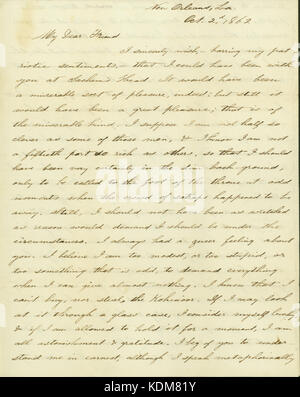 New Orleans, La
Oct. 2d, 1862
My Dear Friend
I sincerely wish, having my pat
riotic sentiments, that I could have been with
you at Sachem's Head. It would have been
a miserable sort of pleasure, indeed: but still it
would have been a great pleasure, that is of
the miserable kind. I suppose I am not half so
clever as some of those men, & I know I am not
a fiftieth part so rich as others, so that I should
have been very certainly in the dim back ground,
only to be called to the foot of the throne at odd
moments when the crowd of satraps happened to be
away. Still, I should not have been as wretched
as reason would demand I should be under the
circumstances. I always had a queer feeling about
you. I believe I am too modest, or too stupid, or
too something that is odd, to demand everything
when I can give almost nothing. I know that I
can't buy, nor steal the Kohinoor. If I may look
at it through a glass case, I consider myself lucky
& if I am allowed to hold it for a moment, I am
all astonishment & gratitude. I beg of you to under
stand me in earnest, although I speak metaphorically
alamy
KDM81Y